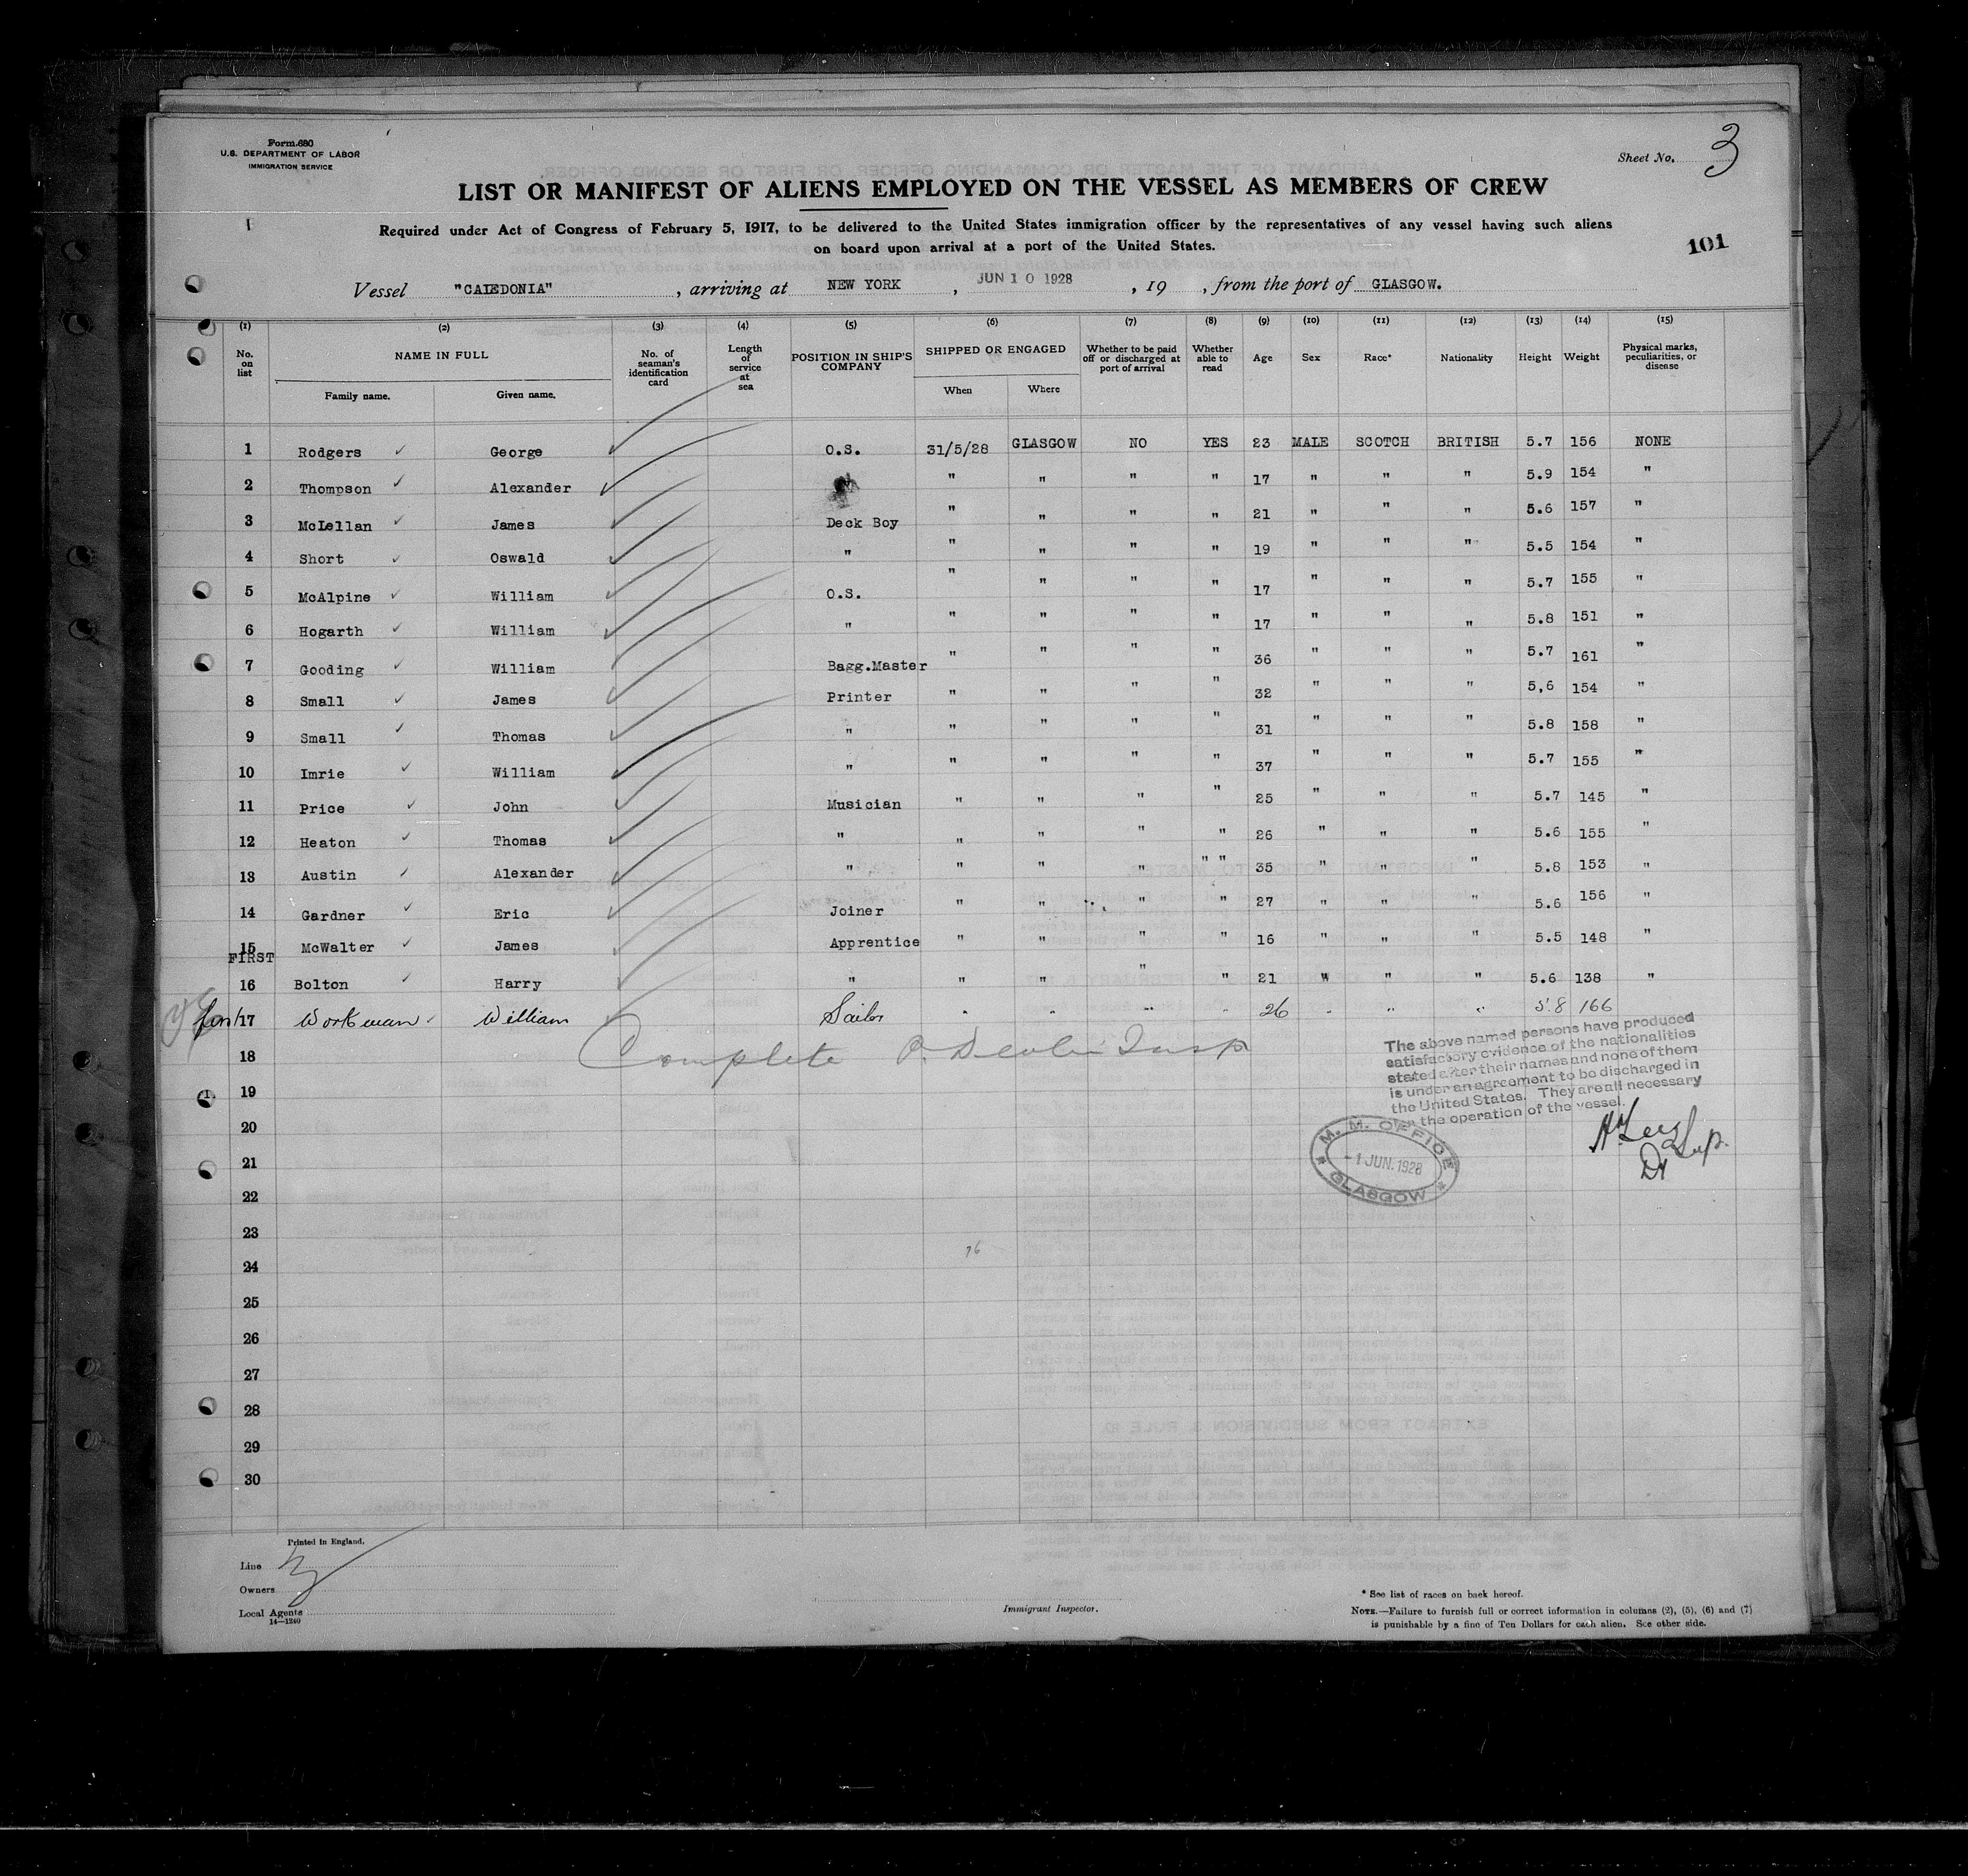 Form 680
U.S. DEPARTMENT OF LABOR
IMMIGRATION SERVICE
Sheet No. 3
LIST OR MANIFEST OF ALIENS EMPLOYED ON THE VESSEL AS MEMBERS OF CREW
Required under Act of Congress of February 5, 1917, to be delivered to the United States immigration officer by the representatives of any vessel having such aliens
on board upon arrival at a port of the United States.
101
Vessel "CALEDONIA", arriving at NEW YORK, JUN 10 1928, 19 , from the port of GLASGOW.
(1) (2) (3) (4) (5) (6) (7) (8) (9) (10) (11) (12) (13) (14) (15)
No. on list NAME IN FULL Family name. Given name. No. of seaman's identification card Length of service at sea POSITION IN SHIP'S COMPANY SHIPPED OR ENGAGED When Where Whether to be paid off or discharged at port of arrival Whether able to read Age Sex Race* Nationality Height Weight Physical marks, peculiarities, or disease
1 Rodgers ✓ George O.S. 31/5/28 GLASGOW NO YES 23 MALE SCOTCH BRITISH 5.7 156 NONE
2 Thompson ✓ Alexander " " " " 17 " " " 5.9 154 "
3 McLellan ✓ James Deck Boy " " " " 21 " " " 5.6 157 "
4 Short ✓ Oswald " " " " " 19 " " " 5.5 154 "
5 McAlpine ✓ William O.S. " " " " 17 " " " 5.7 155 "
6 Hogarth ✓ William " " " " " 17 " " " 5.8 151 "
7 Gooding ✓ William Bagg.Master " " " " 36 " " " 5.7 161 "
8 Small ✓ James Printer " " " " 32 " " " 5,6 154 "
9 Small ✓ Thomas " " " " " 31 " " " 5.8 158 "
10 Imrie ✓ William " " " " " 37 " " " 5.7 155 "
11 Price ✓ John Musician " " " " 25 " " " 5.7 145 "
12 Heaton ✓ Thomas " " " " " 26 " " " 5.6 155 "
13 Austin ✓ Alexander " " " " " " 35 " " " 5.8 153 "
14 Gardner ✓ Eric Joiner " " " " 27 " " " 5.6 156 "
15 McWalter ✓ James Apprentice " " " " 16 " " " 5.5 148 "
FIRST
16 Bolton ✓ Harry " " " " " 21 " " " 5.6 138 "
first 17 Workman ✓ William Sailor " " " " 26 " " " 5.8 166
Complete P. Devlin Insp
18
The above named persons have produced
satisfactory evidence of the nationalities
stated after their names and none of them
is under an agreement to be discharged in
the United States. They are all necessary
the operation of the vessel.
19
20
M. M. OFFICE
-1 JUN. 1928
GLASGOW
21
22
23
24
76
25
26
27
28
29
30
Printed in England.
Line
Owners
Local Agents
14—1240
Immigrant Inspector.
* See list of races on back hereof.
NOTE.—Failure to furnish full or correct information in columns (2), (5), (6) and (7)
is punishable by a fine of Ten Dollars for each alien. See other side.